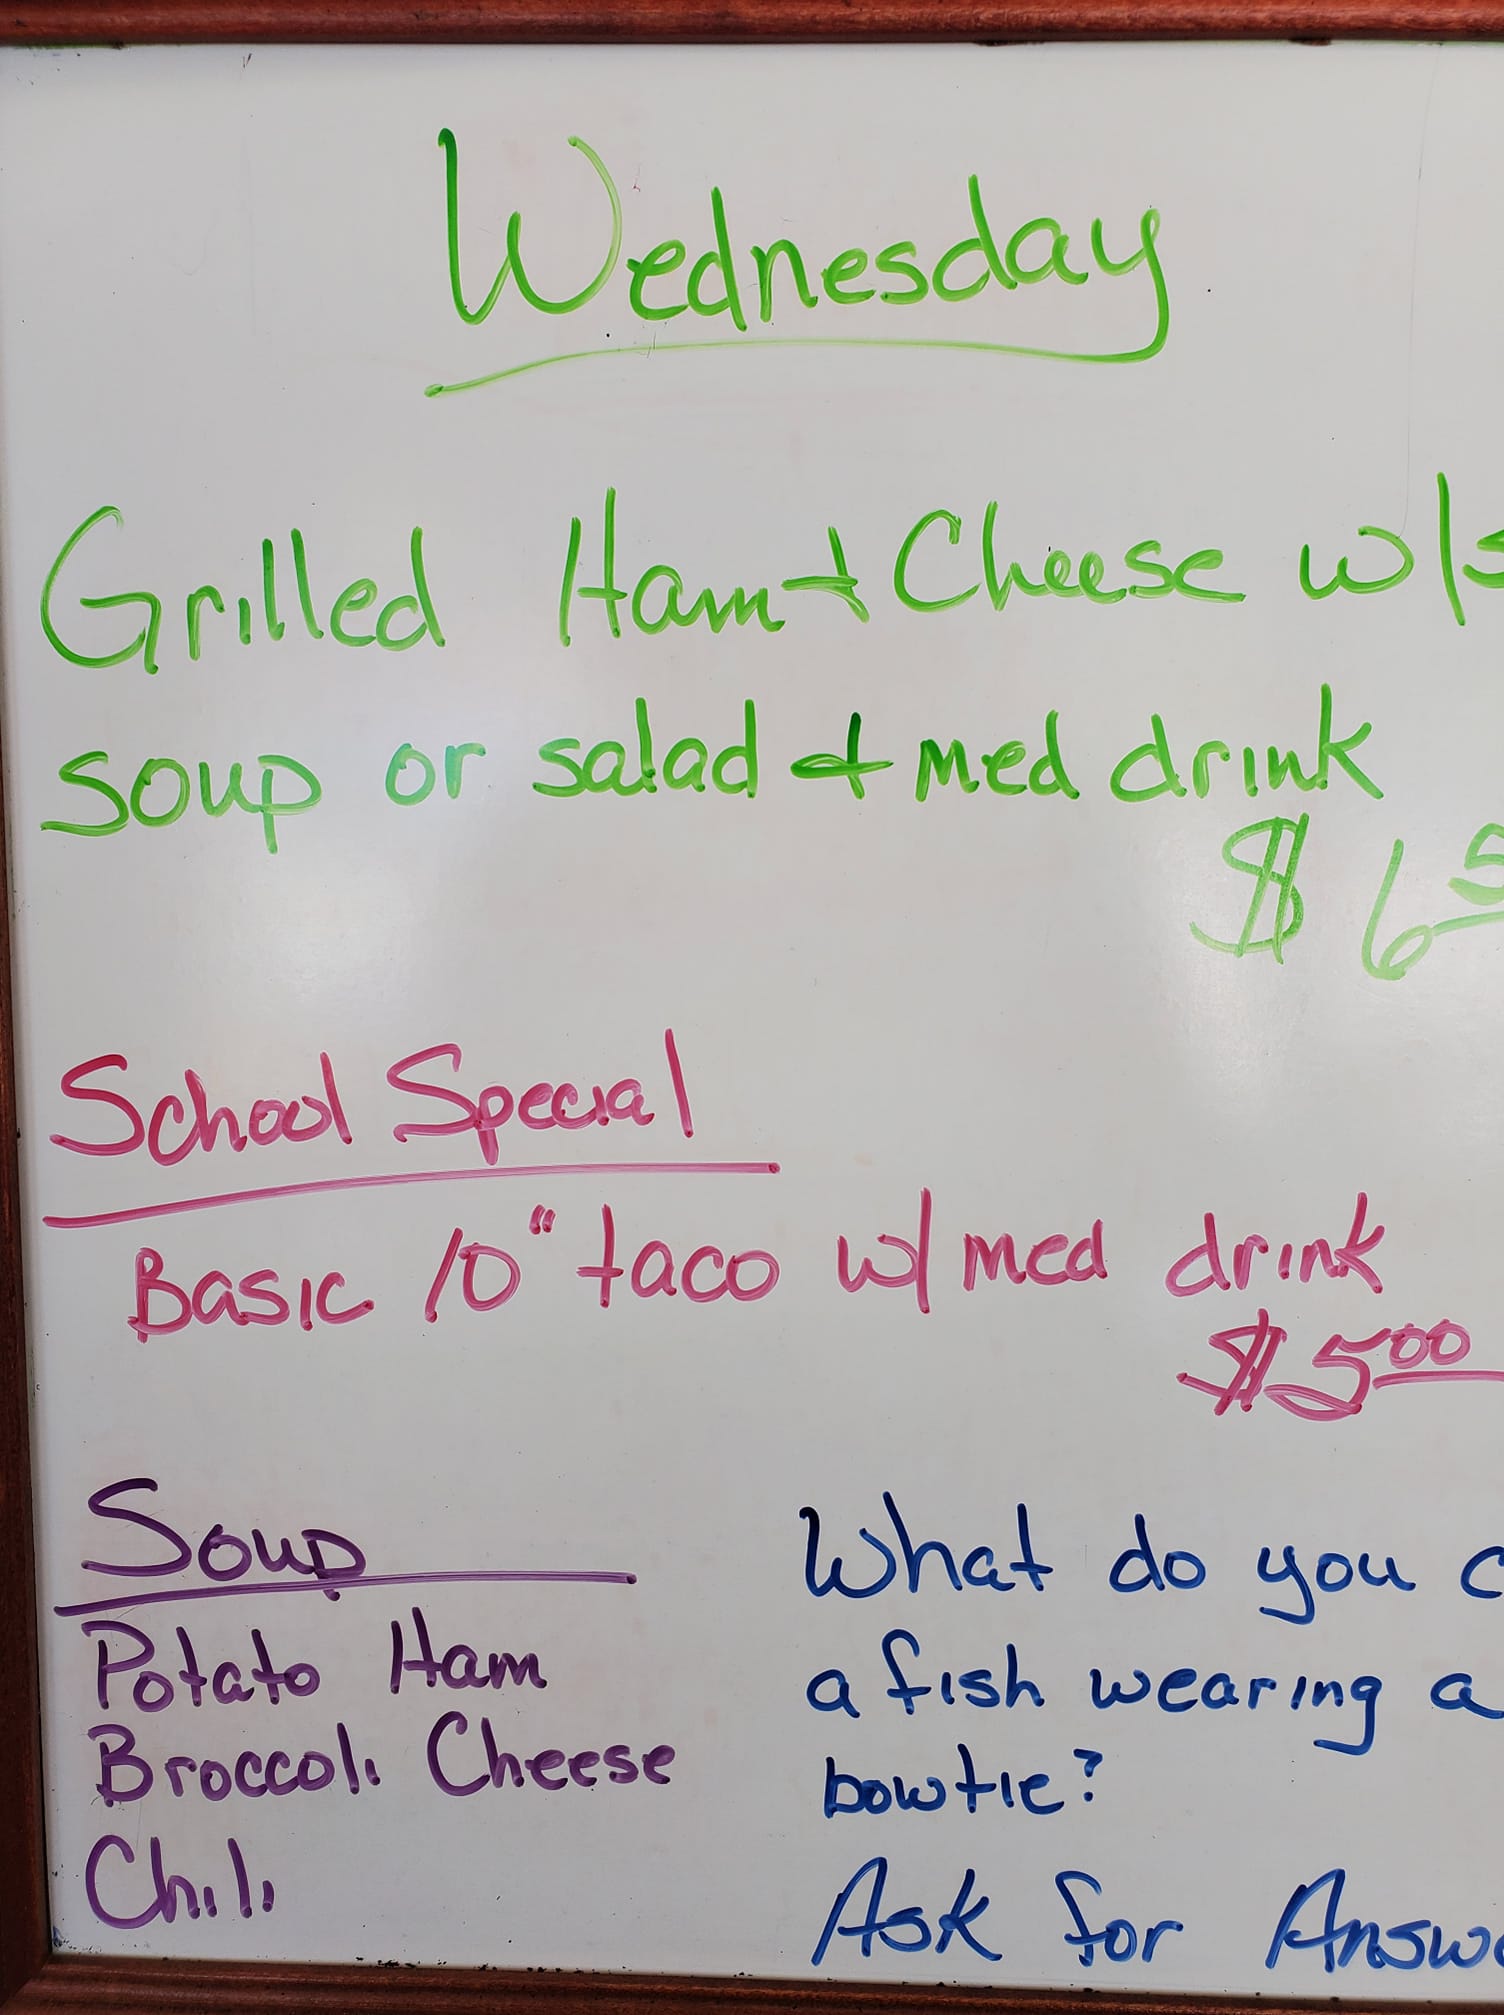 Wednesday
Grilled Ham + Cheese w/s
soup or salad + med drink
$ 6 5
School Special
Basic 10" taco w/ med drink
$5 00
Soup
Potato Ham
Broccoli Cheese
Chili
What do you c
a fish wearing a
bowtie?
Ask for Answe